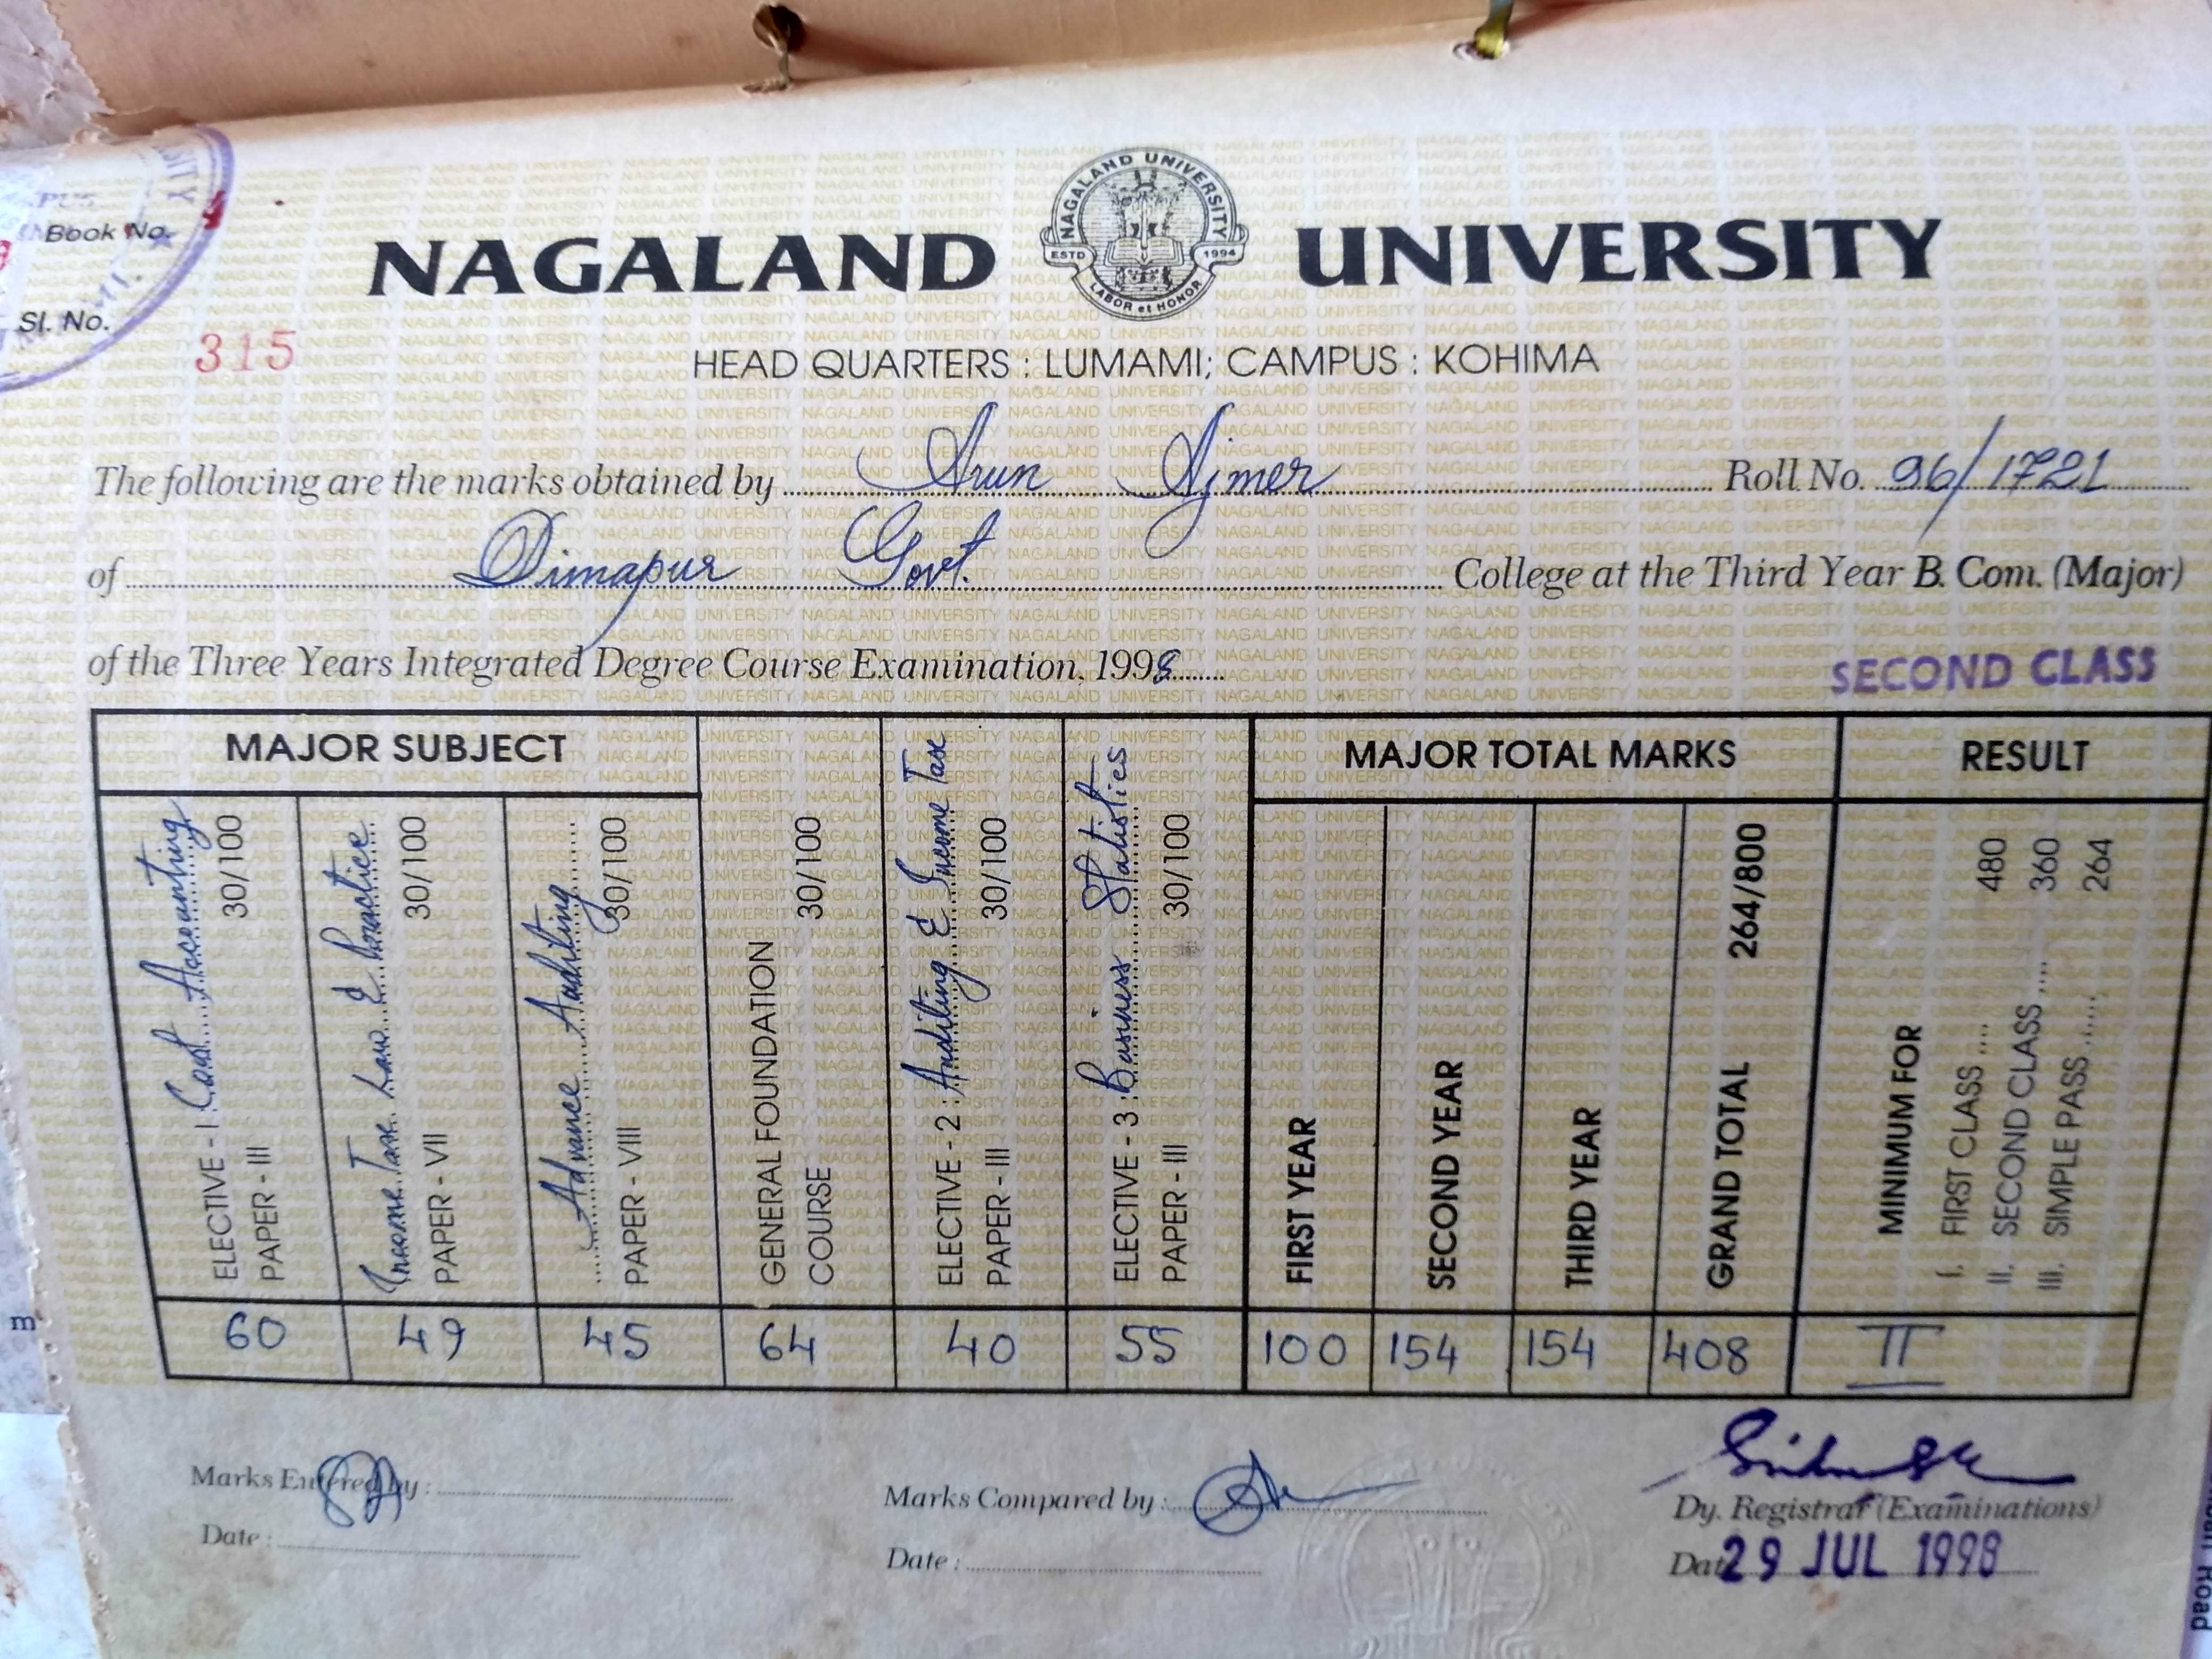 Book No.
Sl. No.
315
NAGALAND UNIVERSITY
NAGALAND UNIVERSITY
ESTD 1994
LABOR et HONOR
HEAD QUARTERS : LUMAMI; CAMPUS : KOHIMA
The following are the marks obtained by Arun Ajmer Roll No. 96/1721
of Dimapur Govt. College at the Third Year B. Com. (Major)
of the Three Years Integrated Degree Course Examination, 1998
SECOND CLASS
MAJOR SUBJECT
MAJOR TOTAL MARKS
RESULT
ELECTIVE - I Cost Accounting
PAPER - III 30/100
Income Tax Law & Practice
PAPER - VII 30/100
Advance Auditing
PAPER - VIII 30/100
GENERAL FOUNDATION
COURSE 30/100
ELECTIVE - 2 : Auditing & Income Tax
PAPER - III 30/100
ELECTIVE - 3 : Business Statistics
PAPER - III 30/100
FIRST YEAR
SECOND YEAR
THIRD YEAR
GRAND TOTAL 264/800
MINIMUM FOR
I. FIRST CLASS ..... 480
II. SECOND CLASS .... 360
III. SIMPLE PASS ..... 264
60 49 45 64 40 55 100 154 154 408 II
Marks Entered by :
Marks Compared by :
Dy. Registrar (Examinations)
Date :
Date :
Dat 29 JUL 1998